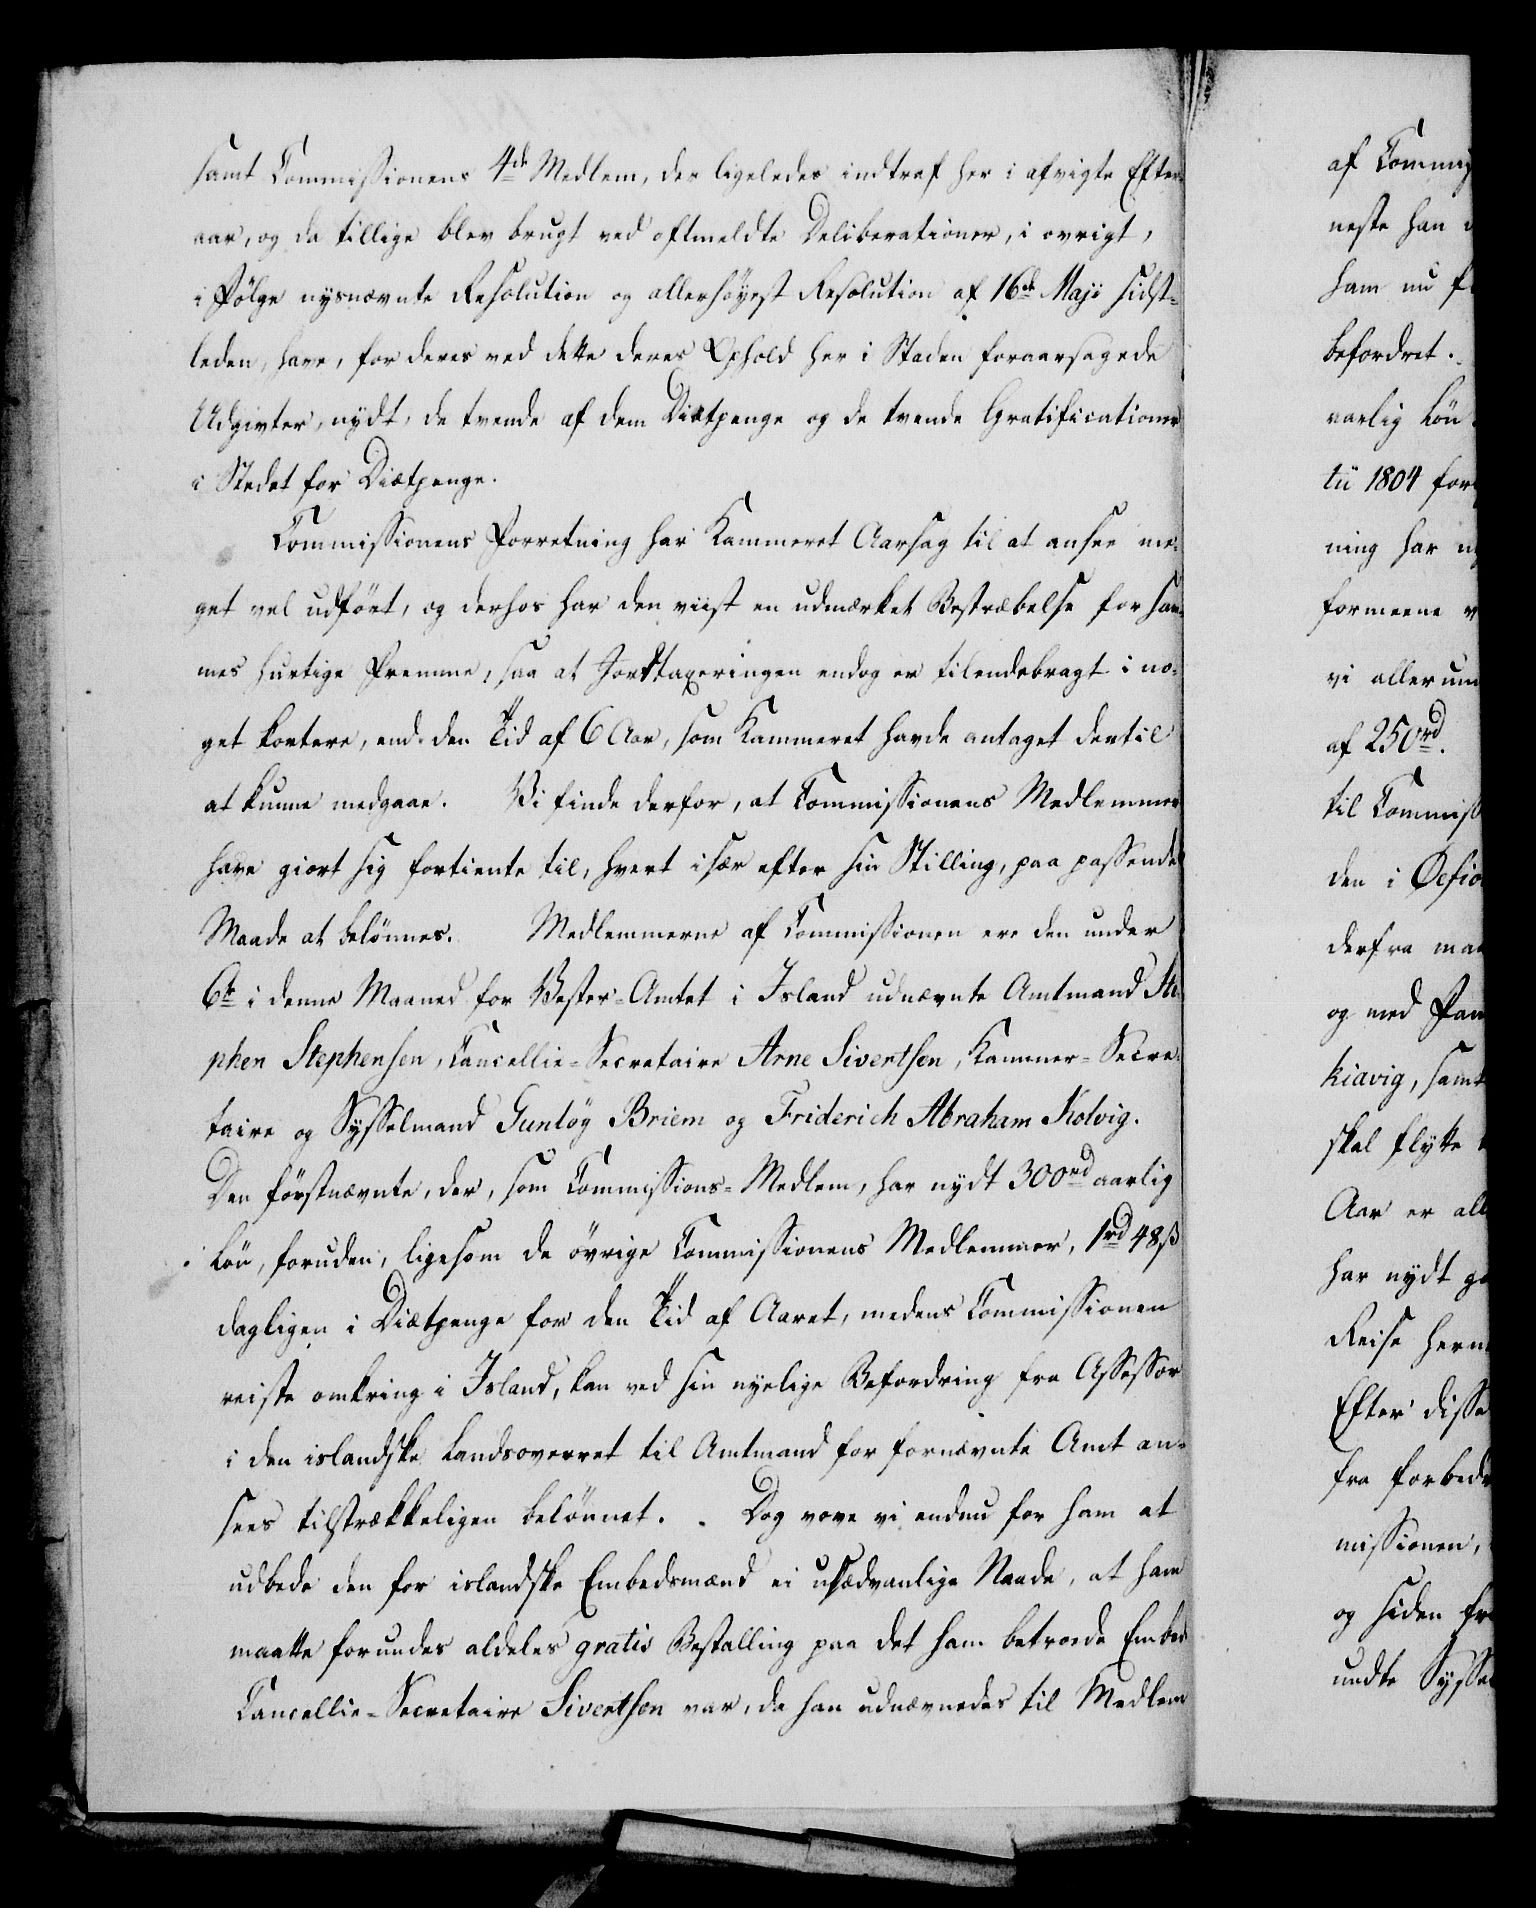 samt Commissionens 4de Medlem, der ligeledes indtraf her i afvigte Efter-
aar, og da tillige blev brugt ved oftmeldte Deliberationer, i øvrigt,
i Følge nysnævnte Resolution og allerhöyest Resolution af 16de Maji sidst-
leden, have, for deres ved dette deres Ophold her i Staden foraarsagede
Udgivter, nydt, de tvende af dem Diætpenge og de tvende Gratificationer
i Stedet for Diætpenge.
Commissionens Forretning har Kammeret Aarsag til at ansee me-
get vel udfört, og derhos har den viist en udmærket Bestræbelse for sam-
mes hurtige Fremme, saa at Jordtaxeringen endog er tilendebragt i no-
get kortere, end den Tid af 6 Aar, som Kammeret havde antaget dertil
at kunne medgaae. Vi finde derfor, at Commissionens Medlemmer
have giort sig fortiente til, hvert især efter sin Stilling, paa passende
Maade at belönnes. Medlemmerne af Commissionen ere den under
6te i denne Maaned for Vester-Amtet i Island udnævnte Amtmand Ste-
phen Stephensen, Cancellie-Secretaire Arne Sivertsen, Kammer-Secre-
taire og Sysselmand Gunlög Briem og Friderich Abraham Kolvig.
Den förstnævnte, der, som Commissions-Medlem, har nydt 300rd aarlig
Lön, foruden, ligesom de övrige Commissionens Medlemmer, 1rd 48ß
dagligen i Diætpenge for den Tid af Aaret, medens Commissionen
reiste omkring i Island, kan ved sin nyelige Befordring fra Assessor
i den islandske Landsoverret til Amtmand for fornævnte Amt an-
sees tilstrækkeligen belönnet. Dog vove vi endnu for ham at
udbede den for islandske Embedsmænd ei usædvanlige Naade, at ham
maatte forundes aldeles gratis Bestalling paa det ham betroede Embed
Cancellie-Secretaire Sivertsen var, da han udnævnedes til Medlem
af Commis
neste han
ham nu
befordret.
varlig Lön
tii 1804 for
ning har
formeene
vi allerun
af 250rd.
til Commiss
den i Oefio
derfra maa
og med
kiavig, samt
skal flytte
Aar er all
har nydt
Reise her
Efter disse
fra forbed
missionen,
og siden fr
undte Sysse